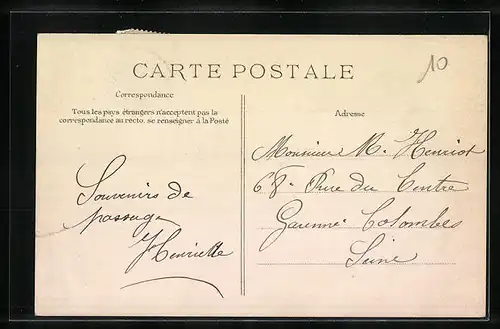 CARTE POSTALE
10
Correspondance
Tous les pays étrangers n'acceptent pas la
correspondance au recto, se renseigner à la Poste
Souvenirs de
passage
Henriette
Adresse
Monsieur M. Henriot
68 Rue du Centre
Garenne-Colombes
Seine